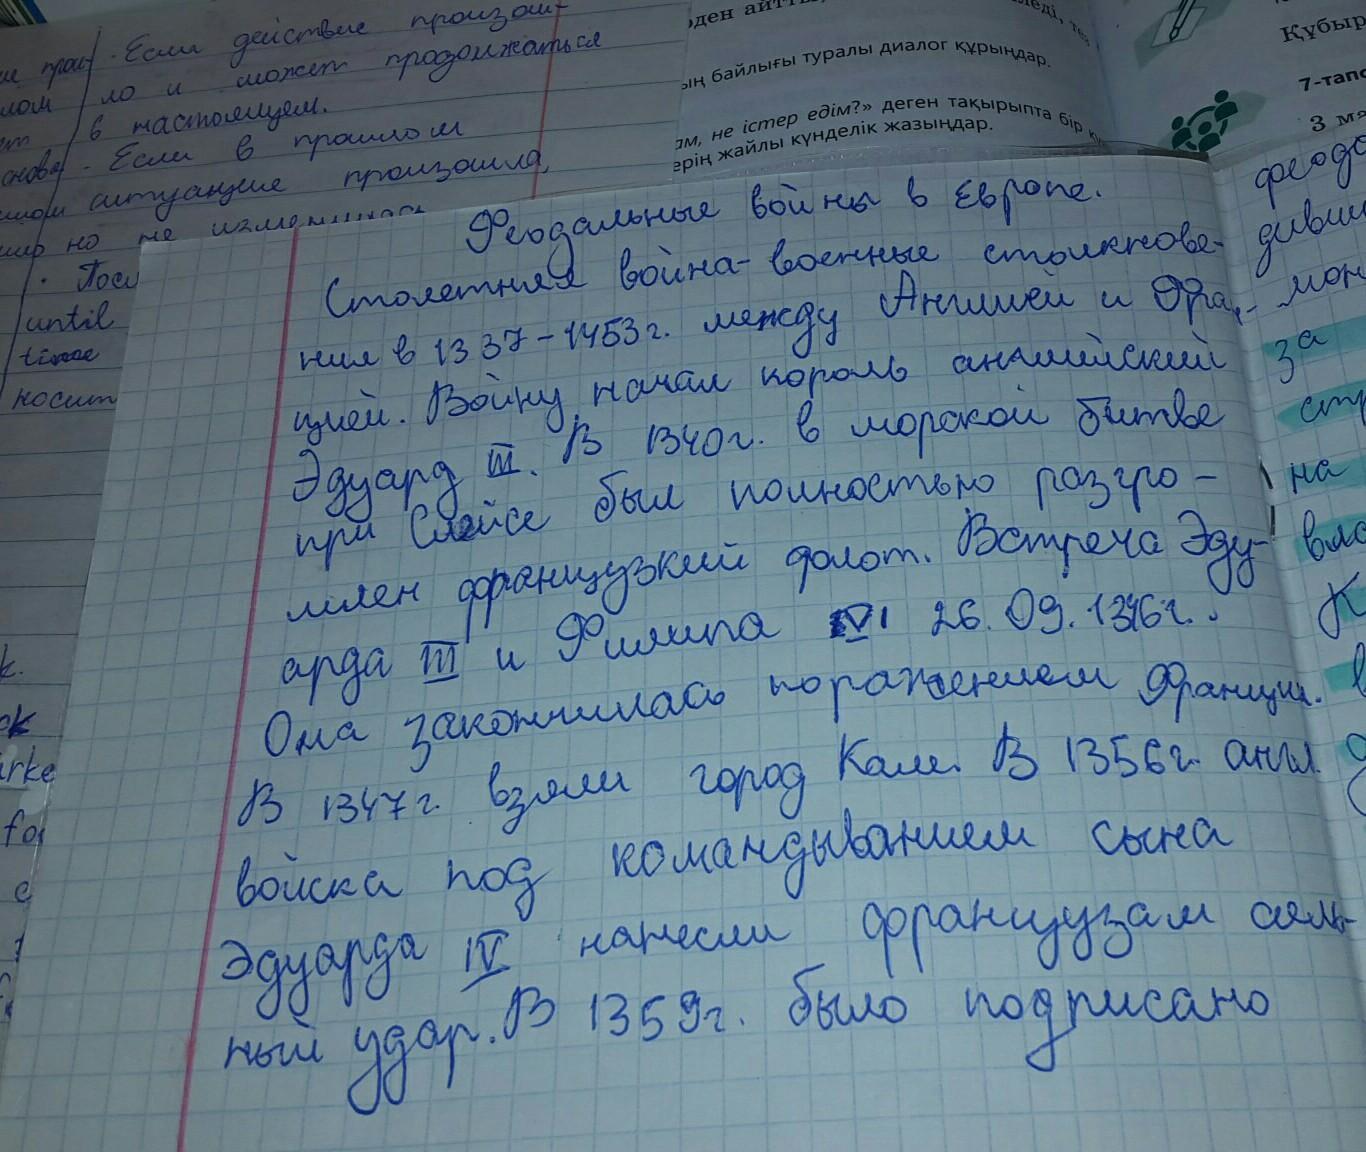 Если действие произош-
ло и может продолжаться
в настоящем.
Если в прошлом
ситуация произошла,
но не изменилась
until
носит
ың байлығы туралы диалог құрыңдар.
не істер едім?» деген тақырыпта бір
ерің жайлы күнделік жазыңдар.
7-тапс
Феодальные войны в Европе.
Столетняя война - военные столкнове-
ния в 1337 - 1453г. между Англией и Фран-
цией. Войну начал король английский
Эдуард III. В 1340г. в морской битве
при Слейсе был полностью разгро-
млен французкий флот. Встреча Эду-
арда III и Филипа VI 26.09.1346г..
Она закончилась поражением Франции.
В 1347г. взяли город Кале. В 1356г. англ.
войска под командыванием сына
Эдуарда IV нанесли французам силь-
ный удар. В 1359г. было подписано
за
на